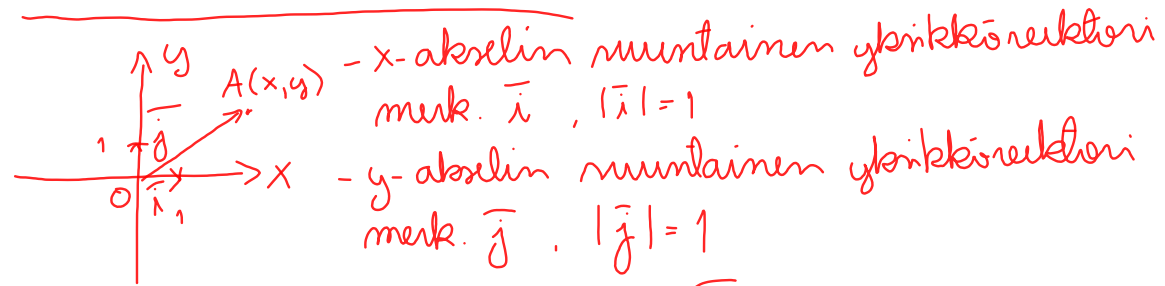 y
A(x,y)
1 j̅
x
O i̅ 1
- x-akselin suuntainen yksikkövektori
merk. i̅ , |i̅| = 1
- y-akselin suuntainen yksikkövektori
merk. j̅ , |j̅| = 1